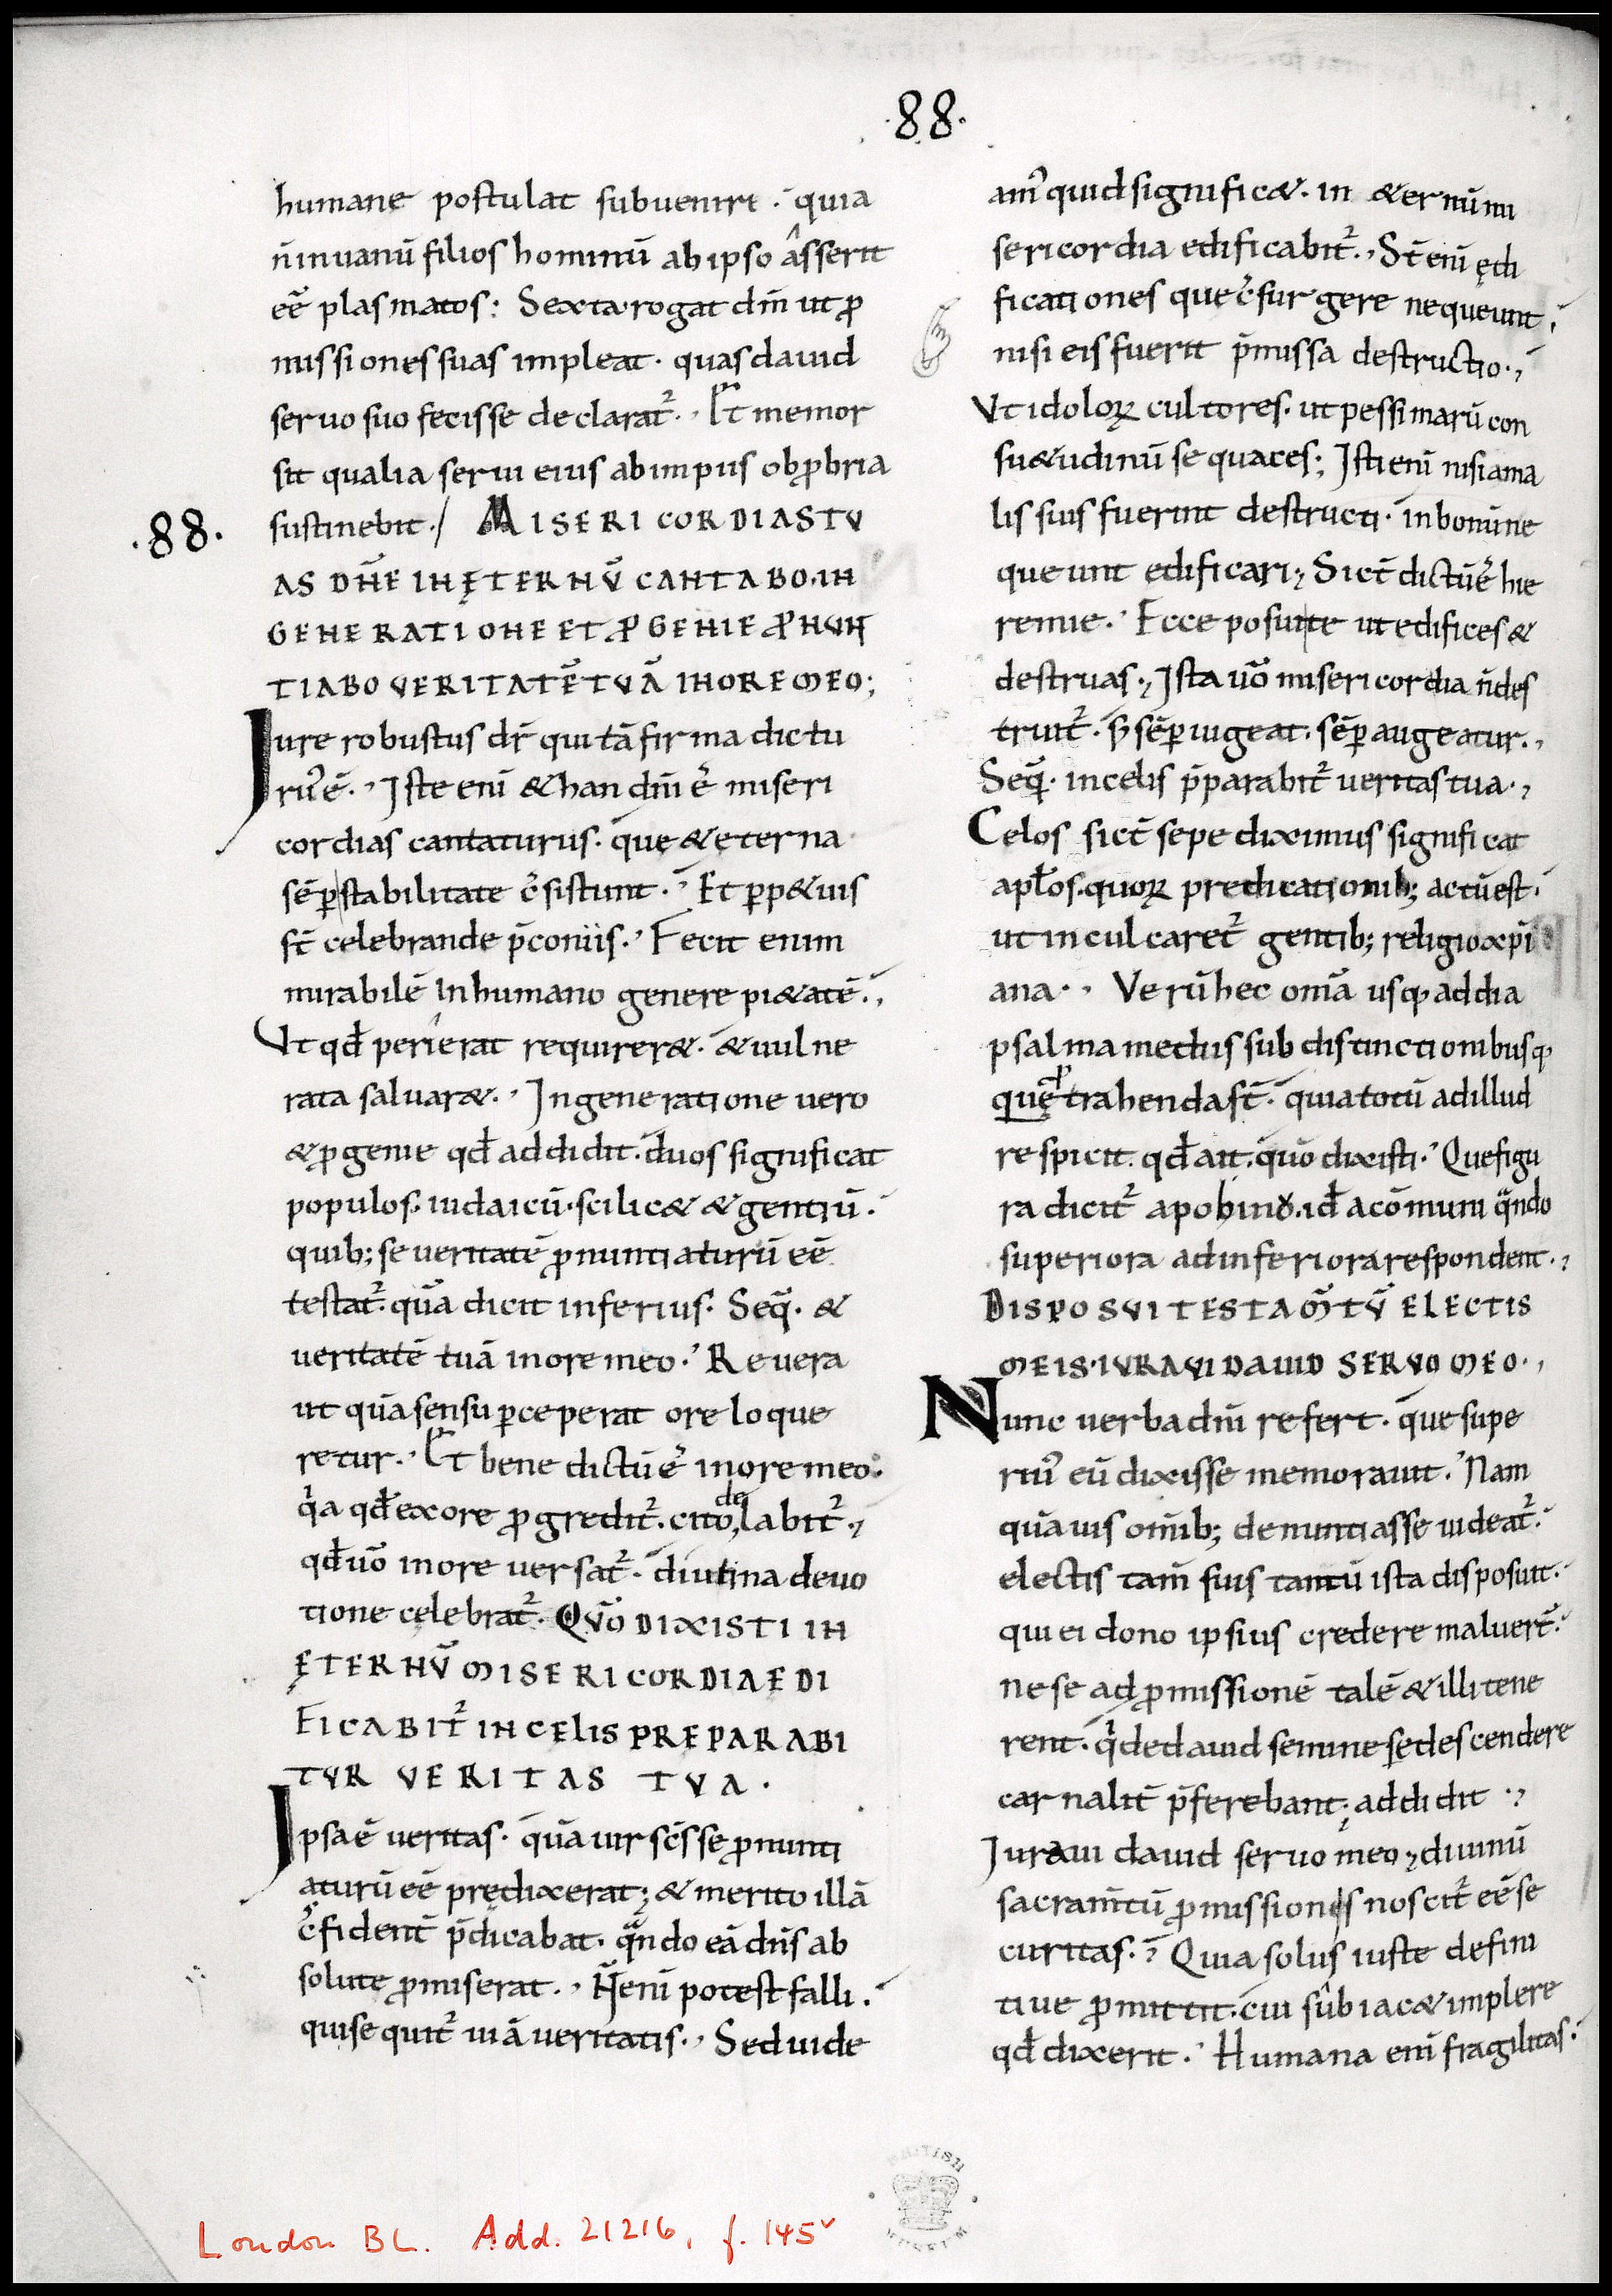 ·88·
humane postulat subvenire · quia
n̄ inuanū filios hominū ab ipso asserit
eē plasmatos: Sexta rogat dn̄m ut ꝓ
missiones suas impleat · quas dauid
seruo suo fecisse declarat᷑ ·, Et memor
sit qualia serui eius ab impiis obꝓbria
sustinebit ·/ MISERICORDIAS TV
·88·
AS DN̄E IN ĘTERNV̄ CANTABO·IN
GENERATIONE ET ꝒGENIE ꝒNVN
TIABO VERITATĒ TVĀ IN ORE MEO;
Iure robustus dr̄ qui tā firma dictu
rus ē ·, Iste enī & han dn̄i ē miseri
cordias cantaturus · que & eterna
sēꝑ stabilitate c̄sistunt · Et ꝑp&uis
st̄ celebrande p̄coniis ·, Fecit enim
mirabilē in humano genere pi&atē ·,
Ut qd̄ perierat requirer& · & uulne
rata saluar& ·, In generatione vero
& ꝓgenie qd̄ addidit · duos significat
populos · iudaicū · scilic& & gentiū ·
quib; se veritatē ꝓnuntiaturū eē
testat᷑ · quā dicit inferius · Seq̄ · &
veritatē tuā in ore meo ·, Re vera
ut quā sensu ꝑceperat ore loque
retur ·, Et bene dictū ē in ore meo ·
qa qd̄ ex ore ꝓgredit᷑ · cito, delabit᷑ ·,
qd̄ uō in ore versat᷑ · diutina deuo
tione celebrat᷑ · QVŌ DIXISTI IN
ĘTERNV̄ MISERICORDIA EDI
FICABIT᷑ IN CELIS PREPARABI
TVR VERITAS TVA ·
Ipsa ē veritas · quā uir sc̄s se ꝓnunti
aturū eē prędixerat; & merito illā
c̄fident̄ p̄dicabat · qn̄do eā dn̄s ab
solute ꝓmiserat ·, N̄ enī potest falli ·
qui sequit᷑ uiā veritatis ·, Sed uide
am᷒ quid signific& · in &ernū mi
sericordia edificabit᷑ ·, St̄ enī ędi
ficationes que c̄surgere nequeunt ·
nisi eis fuerit p̄missa destructio ·,
Ut idoloꝝ cultores · ut pessimarū con
su&udinū sequaces; Isti enī nisi a ma
lis suis fuerint destructi · in bonū ne
queunt edificari; Sic̄ dictū ē hie
remie ·, Ecce posui te ut edifices &
destruas ·, Ista uō misericordia n̄ des
truit᷑ · s; sēꝑ uigeat · sēꝑ augeatur ·,
Seq̄ · in celis p̄parabit᷑ veritas tua ·,
Celos sic̄ sepe diximus significat
apl̄os · quoꝝ predicationib; actū est ·
ut inculcaret᷑ gentib; religio xp̄i
ana ·, Verū hec om̄a usq; ad dia
psalma mediis subdistinctionibusq;
quę ꝓtrahenda st̄ · quia totū ad illud
respicit · qd̄ ait · quō dixisti ·, Que figu
ra dicit᷑ apo koinu · id̄ a cōmuni qn̄do
superiora ad inferiora respondent ·,
DISPOSVI TESTAM̄TV̄ ELECTIS
MEIS·IVRAVI DAVID SERVO MEO·,
Nunc verba dn̄i refert · que supe
rius eū dixisse memorauit ·, Nam
quāuis om̄ib; denuntiasse uideat᷑ ·
electis tam̄ suis tantū ista disposuit ·
qui ei dono ipsius credere maluer̄ ·
ne se ad ꝓmissionē talē & illi tene
rent · qi de dauid semine se descendere
carnalit̄ p̄ferebant; addidit ·,
Iuraui dauid seruo meo; diuinū
sacram̄tū ꝓmissionis noscit᷑ eē se
curitas ·, Quia solus iuste defini
tiue ꝓmittit · cui subiac& implere
qd̄ dixerit ·, Humana enī fragilitas ·
London BL. Add. 21216, f. 145v